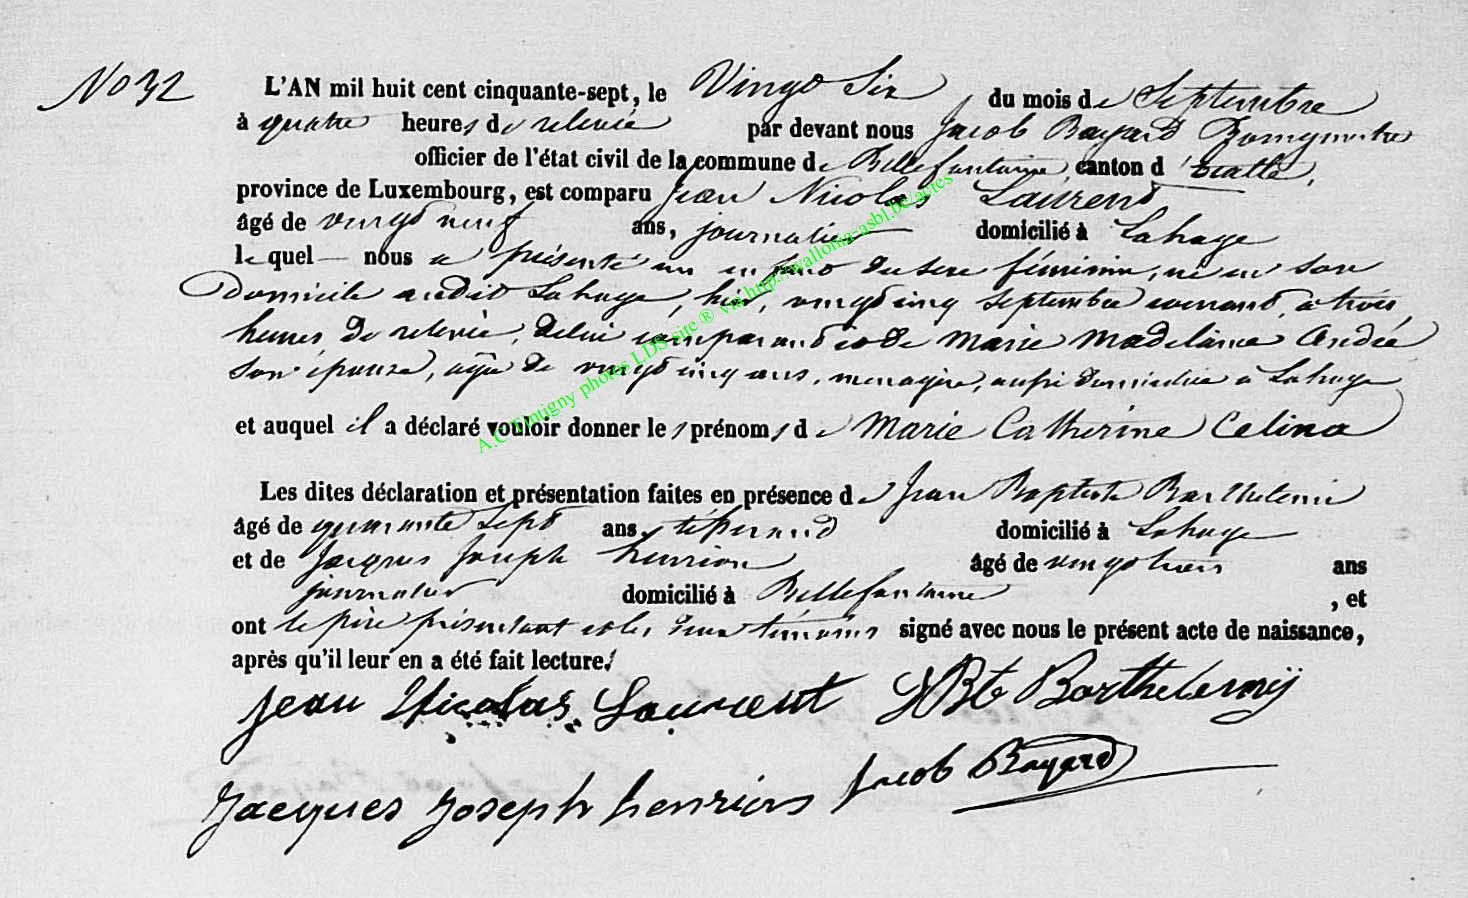 No 32
L'AN mil huit cent cinquante-sept, le Vingt Six du mois de Septembre
à quatre heures de relevée par devant nous Jacob Bayard Bourgmestre
officier de l'état civil de la commune de Bellefontaine, canton d'Etalle,
province de Luxembourg, est comparu Jean Nicolas Laurent
âgé de vingt neuf ans, journalier domicilié à Lahage
le quel nous a présenté un enfant du sexe féminin, né en son
domicile audit Lahage, hier, vingt cinq septembre courant, à trois
heures de relevée, de lui comparant et de Marie Madelaine André
son épouse, agée de vingt cinq ans, menagère, aussi domiciliée à Lahage
et auquel il a déclaré vouloir donner les prénoms de Marie Catherine Celina
Les dites déclaration et présentation faites en présence de Jean Baptiste Barthelemi
âgé de quarante sept ans, domicilié à Lahage
et de Jacques Joseph henrion âgé de vingt trois ans
journalier domicilié à Bellefontaine, et
ont le père présentant et les deux témoins signé avec nous le présent acte de naissance,
après qu'il leur en a été fait lecture.
Jean Nicolas Laurent JBte Barthelemÿ
Jacques Joseph henrion Jacob Bayard
A.C Tintigny photos LDS site ® via http://walloma-asbl.be/actes